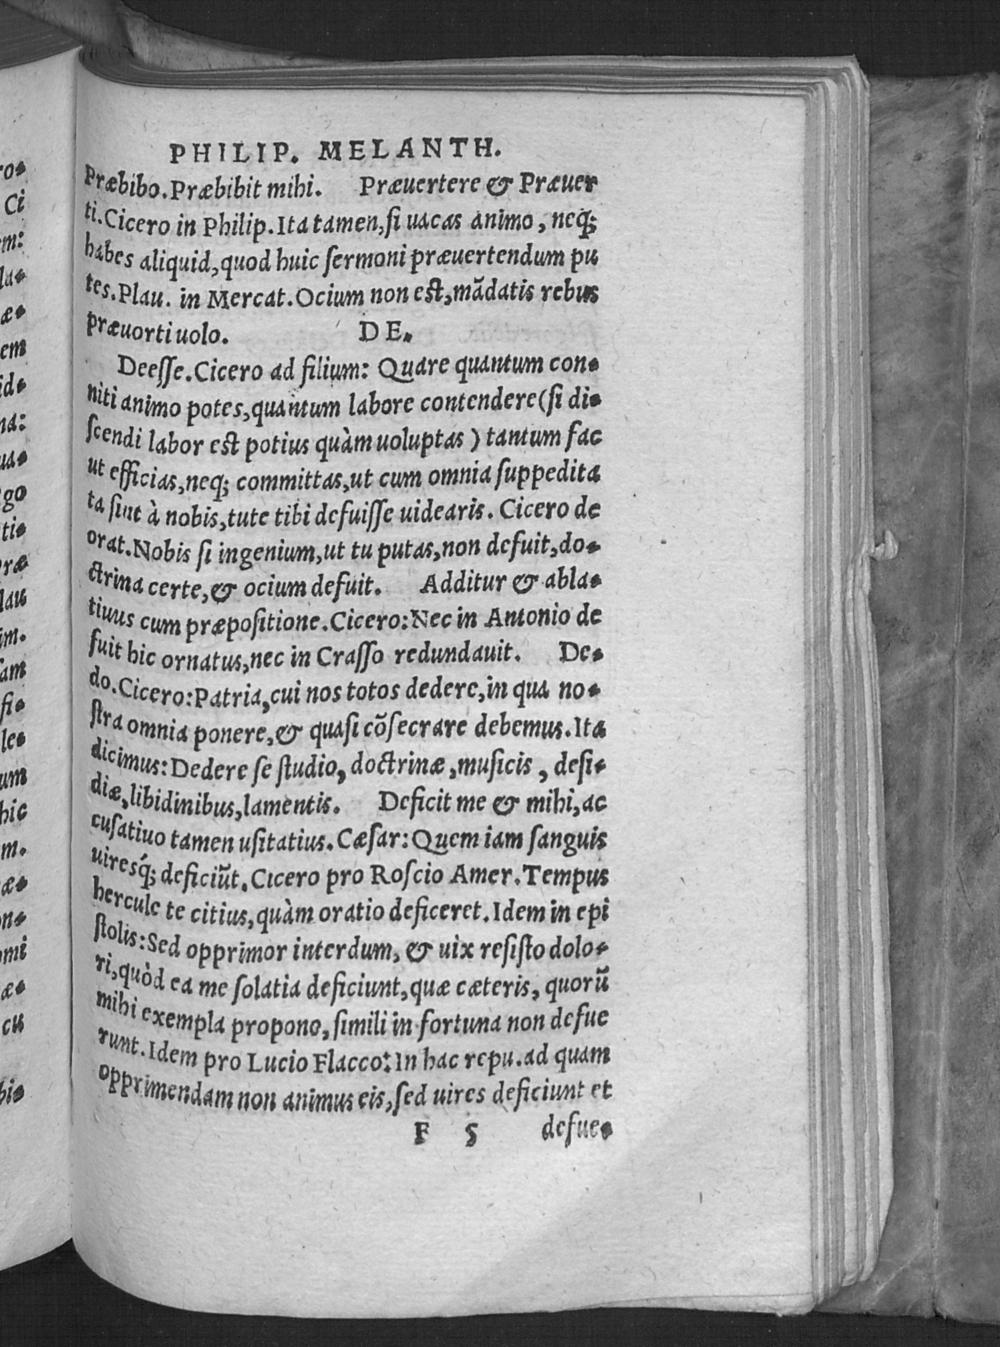 ro-
Ci
em:
la-
æ-
em
id-
na:
ua-
go
tio
ræ
lau
im.
am
fi-
leo
um
hic
m.
æ-
on-
omi
æ-
cu
bi-
PHILIP. MELANTH.
Præbibo. Præbibit mihi. Præuertere & Præuer
ti. Cicero in Philip. Ita tamen, si uacas animo, neq;
habes aliquid, quod huic sermoni præuertendum pu
tes. Plau. in Mercat. Ocium non est, mādatis rebus
præuorti uolo. DE.
Deesse. Cicero ad filium: Quare quantum con-
niti animo potes, quantum labore contendere (si di-
scendi labor est potius quàm uoluptas) tantum fac
ut efficias, neq; committas, ut cum omnia suppedita
ta sint à nobis, tute tibi defuisse uidearis. Cicero de
orat. Nobis si ingenium, ut tu putas, non defuit, do-
ctrina certe, & ocium defuit. Additur & abla-
tiuus cum præpositione. Cicero: Nec in Antonio de
fuit hic ornatus, nec in Crasso redundauit. De-
do. Cicero: Patria, cui nos totos dedere, in qua no-
stra omnia ponere, & quasi cōsecrare debemus. Ita
dicimus: Dedere se studio, doctrinæ, musicis, desi-
diæ, libidinibus, lamentis. Deficit me & mihi, ac
cusatiuo tamen usitatius. Cæsar: Quem iam sanguis
uiresq́; deficiūt. Cicero pro Roscio Amer. Tempus
hercule te citius, quàm oratio deficeret. Idem in epi
stolis: Sed opprimor interdum, & uix resisto dolo-
ri, quòd ea me solatia deficiunt, quæ cæteris, quorū
mihi exempla propono, simili in fortuna non defue
runt. Idem pro Lucio Flacco: In hac repu. ad quam
opprimendam non animus eis, sed uires deficiunt et
F 5 defue-